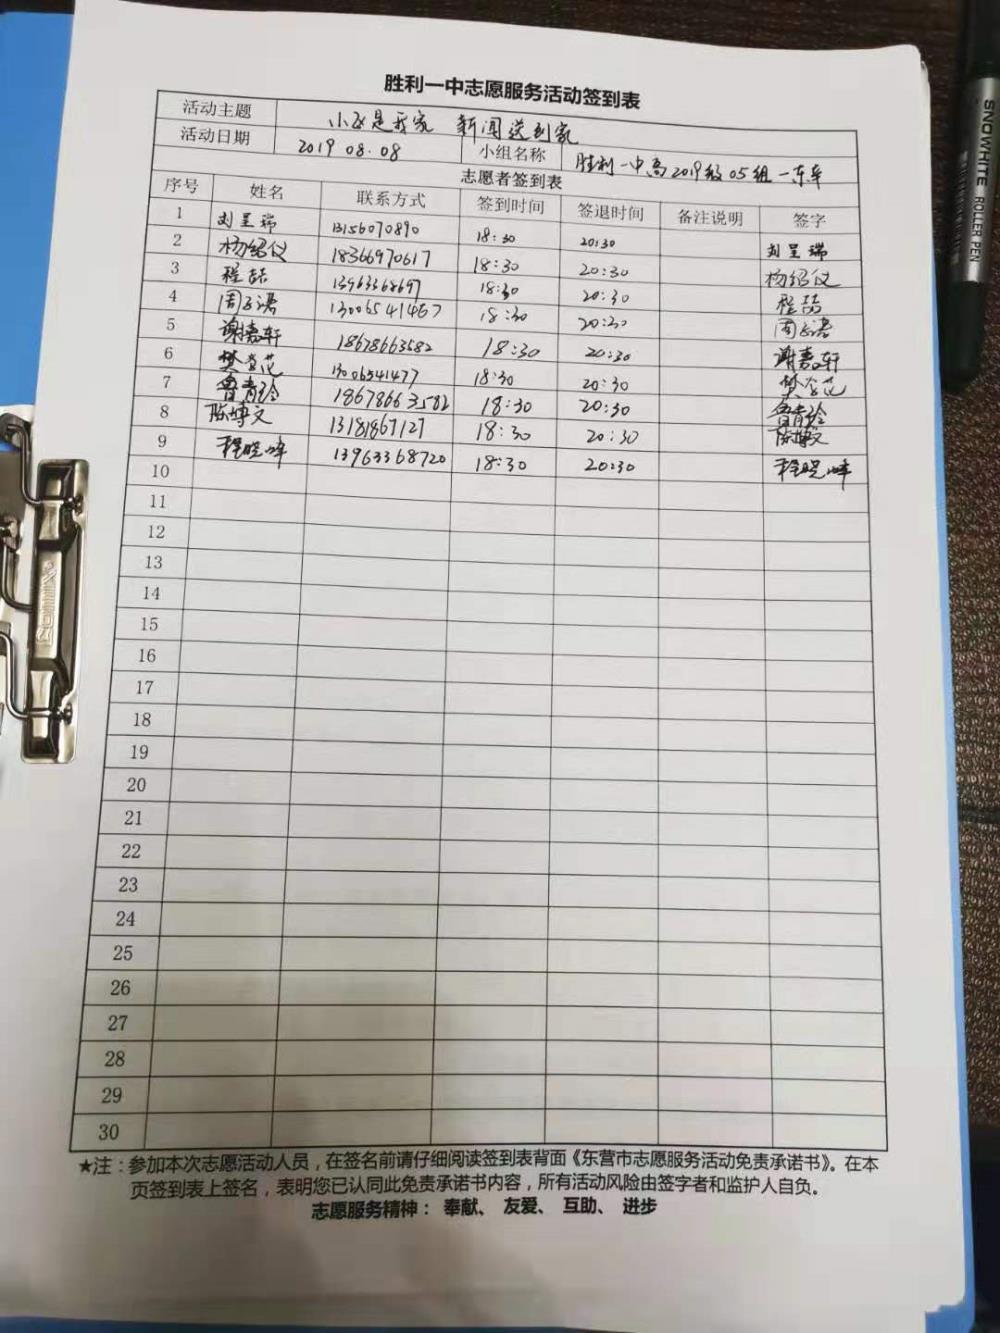 胜利一中志愿服务活动签到表
活动主题 小区是我家 新闻送到家
活动日期 2019 08.08 小组名称 胜利一中高2019级05组一东辛
志愿者签到表
序号 姓名 联系方式 签到时间 签退时间 备注说明 签字
1 刘呈瑞 13156070890 18:30 20:30 刘呈瑞
2 杨绍仪 18366970617 18:30 20:30 杨绍仪
3 程喆 13963368697 18:30 20:30 程喆
4 周 13006541467 18:30 20:30 周
5 谢嘉轩 18678663582 18:30 20:30 谢嘉轩
6 樊 13006541477 18:30 20:30 樊
7 鲁青玲 18678663582 18:30 20:30 鲁青玲
8 陈博文 13181867127 18:30 20:30 陈博文
9 程晓峰 13963368720 18:30 20:30 程晓峰
10
11
12
13
14
15
16
17
18
19
20
21
22
23
24
25
26
27
28
29
30
★注：参加本次志愿活动人员，在签名前请仔细阅读签到表背面《东营市志愿服务活动免责承诺书》。在本
页签到表上签名，表明您已认同此免责承诺书内容，所有活动风险由签字者和监护人自负。
志愿服务精神： 奉献、 友爱、 互助、 进步
SNOWHITE ROLLER PEN